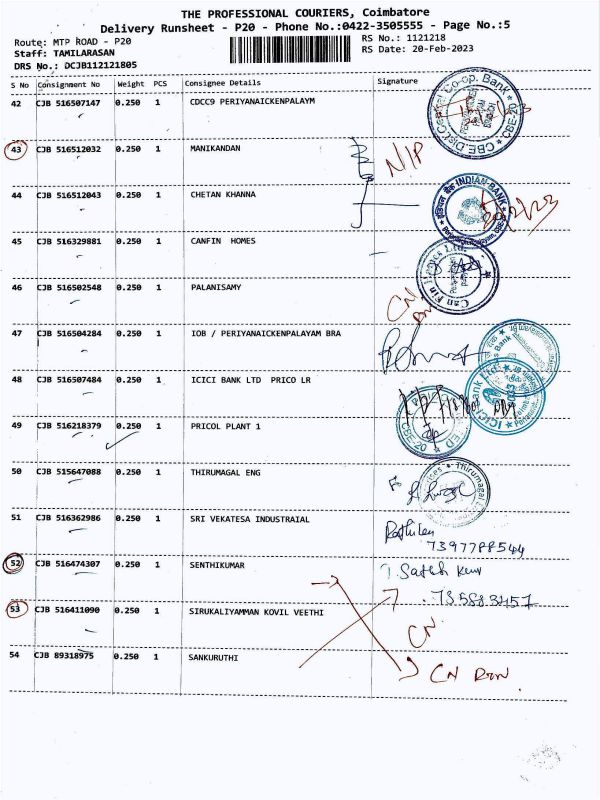 THE PROFESSIONAL COURIERS, Coimbatore
Delivery Runsheet - P20 - Phone No.:0422-3505555 - Page No.:5
Route: MTP ROAD - P20
RS No.: 1121218
Staff: TAMILARASAN
RS Date: 20-Feb-2023
DRS No.: DCJB112121805
S No Consignment No Weight PCS Consignee Details Signature
42 CJB 516507147 0.250 1 CDCC9 PERIYANAICKENPALAYM
CBE.Dist.Central Co-op. Bank CBE-20
43 CJB 516512032 0.250 1 MANIKANDAN N/P
44 CJB 516512043 0.250 1 CHETAN KHANNA
INDIAN BANK
20/2/23
45 CJB 516329881 0.250 1 CANFIN HOMES
Can Fin Homes Ltd.
46 CJB 516502548 0.250 1 PALANISAMY CN
47 CJB 516504284 0.250 1 IOB / PERIYANAICKENPALAYAM BRA
48 CJB 516507484 0.250 1 ICICI BANK LTD PRICO LR
ICICI Bank Ltd.
49 CJB 516218379 0.250 1 PRICOL PLANT 1
CBE-20
50 CJB 515647088 0.250 1 THIRUMAGAL ENG
Thirumagal
51 CJB 516362986 0.250 1 SRI VEKATESA INDUSTRAIAL
7397788544
52 CJB 516474307 0.250 1 SENTHIKUMAR
53 CJB 516411090 0.250 1 SIRUKALIYAMMAN KOVIL VEETHI
CN
54 CJB 89318975 0.250 1 SANKURUTHI
CN